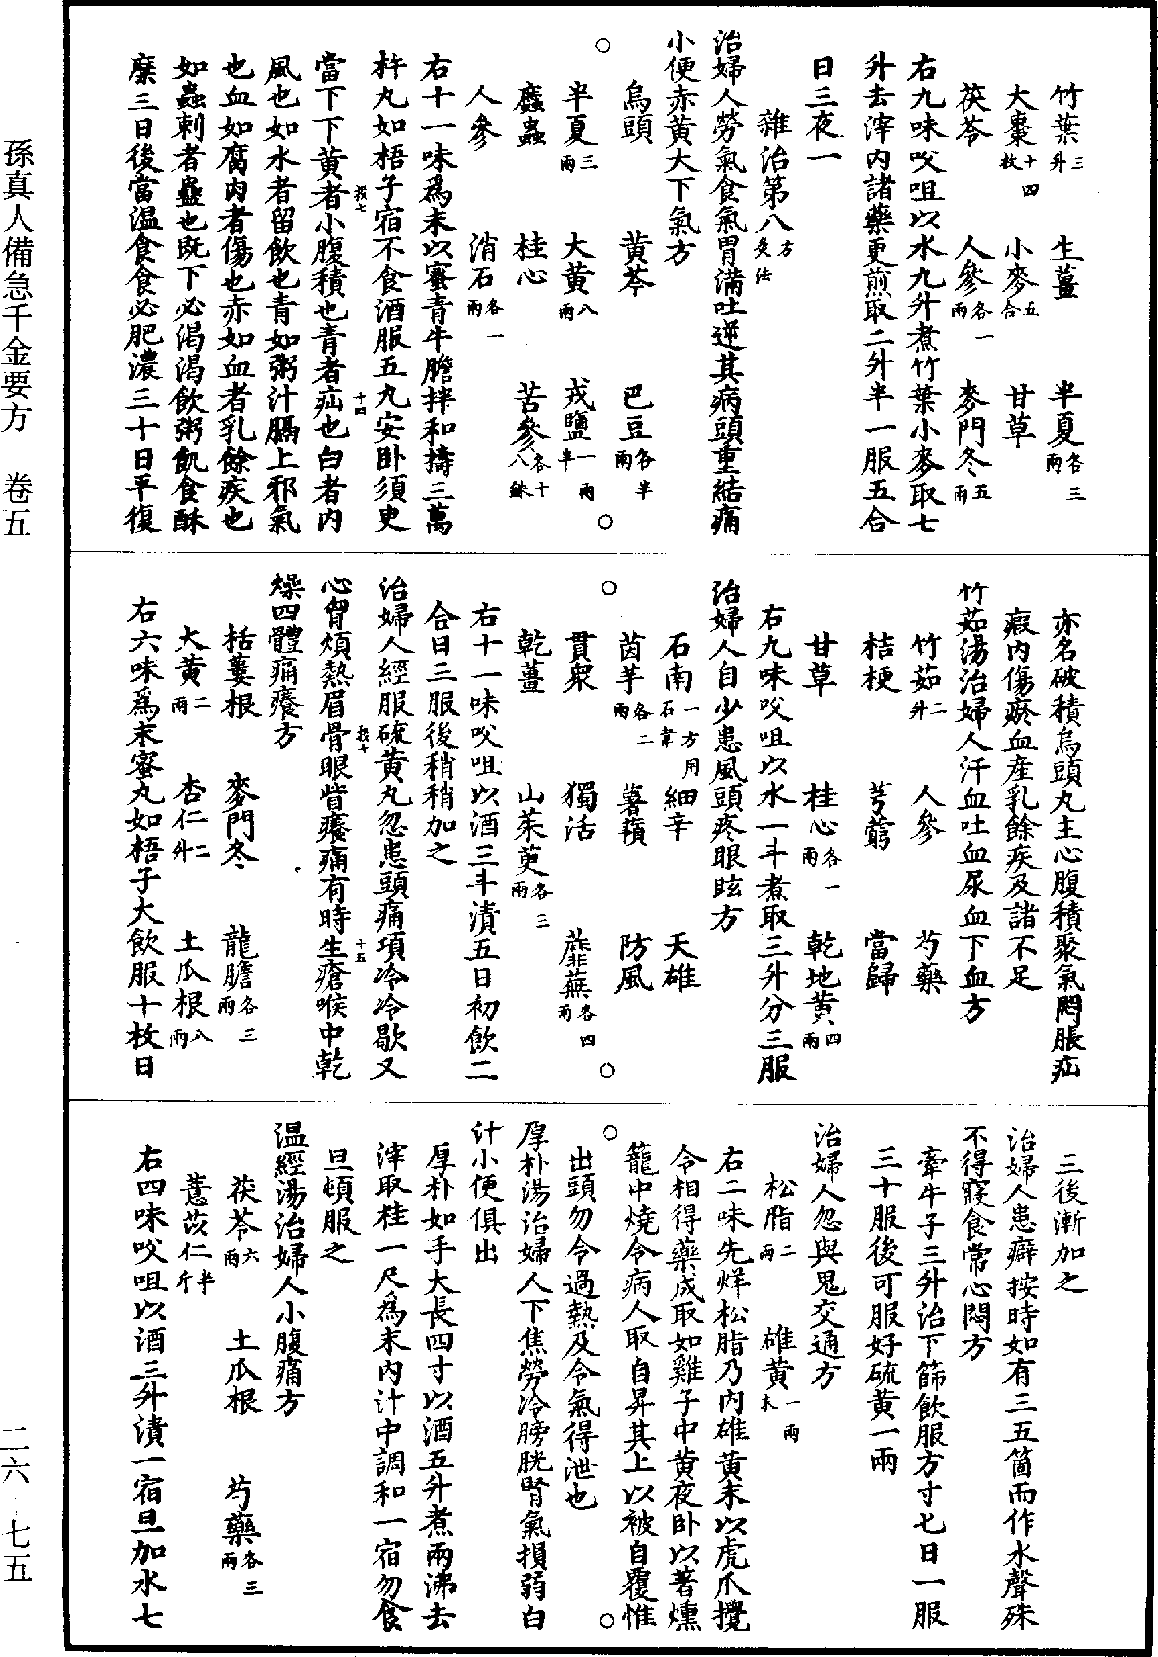 竹葉三升 生薑 半夏各三兩
大棗十四枚 小麥五合 甘草
茯苓 人參各一兩 麥門冬五兩
右九味㕮咀以水九升煮竹葉小麥取七
升去滓內諸藥更煎取二升半一服五合
日三夜一
雜治第八方灸法
治婦人勞氣食氣胃滿吐逆其病頭重結痛
小便赤黃大下氣方
烏頭 黃芩 巴豆各半兩
半夏三兩 大黃八兩 戎鹽一兩半
䗪蟲 桂心 苦參各十八銖
人參 消石各一兩
右十一味為末以蜜青牛膽拌和擣三萬
杵丸如梧子宿不食酒服五丸安臥須臾
當下下黃者小腹積也青者疝也白者內
風也如水者留飲也青如粥汁膈上邪氣
也血如腐肉者傷也赤如血者乳餘疾也
如蟲刺者蠱也既下必渴渴飲粥飢食酥
糜三日後當温食食必肥濃三十日平復
亦名破積烏頭丸主心腹積聚氣悶脹疝
瘕內傷瘀血產乳餘疾及諸不足
竹茹湯治婦人汗血吐血尿血下血方
竹茹二升 人參 芍藥
桔梗 芎藭 當歸
甘草 桂心各一兩 乾地黃四兩
右九味㕮咀以水一斗煮取三升分三服
治婦人自少患風頭疼眼眩方
石南一方用石韋 細辛 天雄
茵芋各二兩 薯蕷 防風
貫衆 獨活 蘼蕪各四兩
乾薑 山茱萸各三兩
右十一味㕮咀以酒三斗漬五日初飲二
合日三服後稍稍加之
治婦人經服硫黃丸忽患頭痛項冷冷歇又
心胷煩熱眉骨眼眥癢痛有時生瘡喉中乾
燥四體痛癢方
栝蔞根 麥門冬 龍膽各三兩
大黃二兩 杏仁二升 土瓜根八兩
右六味為末蜜丸如梧子大飲服十枚日
三後漸加之
治婦人患癖按時如有三五箇而作水聲殊
不得寐食常心悶方
牽牛子三升治下篩飲服方寸七日一服
三十服後可服好硫黃一兩
治婦人忽與鬼交通方
松脂二兩 雄黃一兩末
右二味先烊松脂乃內雄黃末以虎爪攪
令相得藥成取如雞子中黃夜臥以著燻
籠中燒令病人取自昇其上以被自覆惟
出頭勿令過熱及令氣得泄也
厚朴湯治婦人下焦勞冷膀胱腎氣損弱白
汁小便俱出
厚朴如手大長四寸以酒五升煮兩沸去
滓取桂一尺為末內汁中調和一宿勿食
旦頓服之
温經湯治婦人小腹痛方
茯苓六兩 土瓜根 芍藥各三兩
薏苡仁半斤
右四味㕮咀以酒三升漬一宿旦加水七
孫真人備急千金要方 卷五
二六·七五